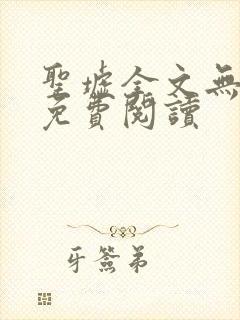 聖墟全文無
免費閱讀
牙簽弟